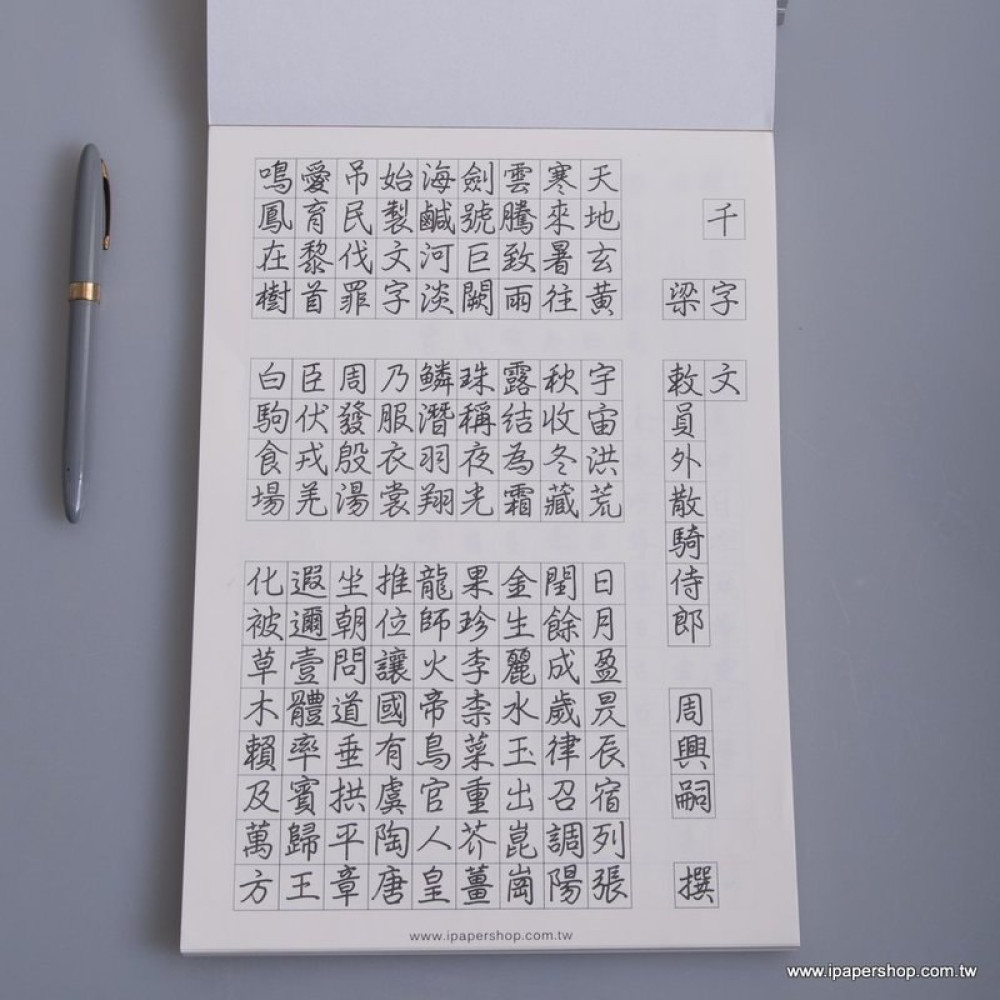 千字文
梁敕員外散騎侍郎 周興嗣 撰
天地玄黃 宇宙洪荒 日月盈昃辰宿列張
寒來暑往 秋收冬藏 閏餘成歲律召調陽
雲騰致雨 露結為霜 金生麗水玉出崑崗
劍號巨闕 珠稱夜光 果珍李柰菜重芥薑
海鹹河淡 鱗潛羽翔 龍師火帝鳥官人皇
始製文字 乃服衣裳 推位讓國有虞陶唐
吊民伐罪 周發殷湯 坐朝問道垂拱平章
愛育黎首 臣伏戎羌 遐邇壹體率賓歸王
鳴鳳在樹 白駒食場 化被草木賴及萬方
www.ipapershop.com.tw
www.ipapershop.com.tw